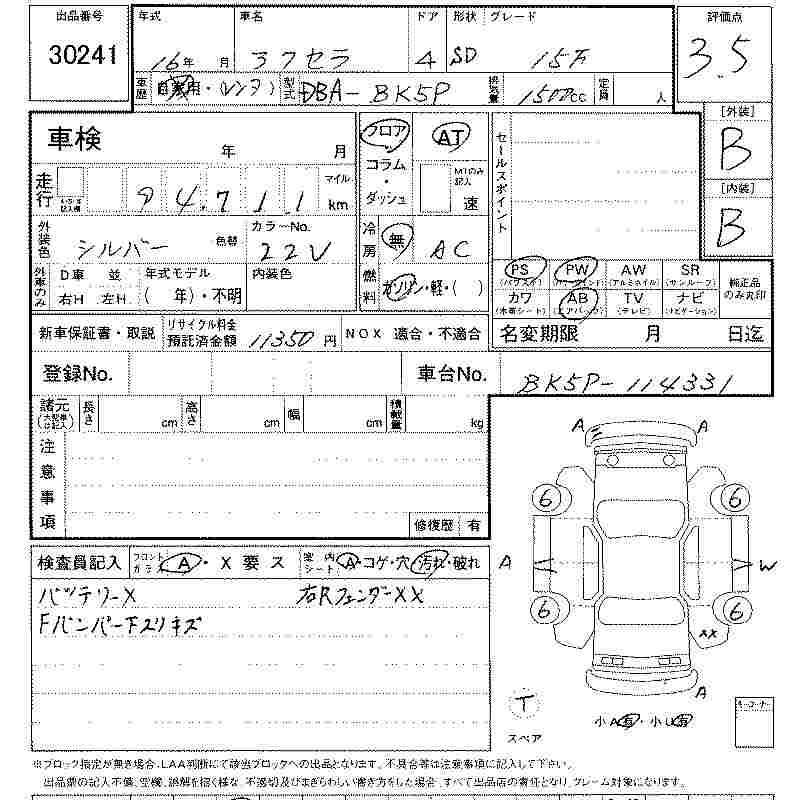 出品番号 年式 車名 ドア 形状 グレード 評価点
30241 16年 月 ラフセラ 4 SD 15F 3.5
車歴 自家用・(レンタ) 型式 DBA-BK5P 排気量 1500cc 定員 人
[外装]
B
[内装]
B
車検 年 月
フロア・コラム・ダッシュ
AT
MTのみ記入
速
セールスポイント
走行 94,711.1 マイル km
外装色 シルバー 色替 カラーNo. 22V
冷房 無 AC
外車のみ D車 並 右H. 左H. 年式モデル ( 年)・不明 内装色
燃料 ガソリン・軽・( )
PS (パワステ) PW (パワーウインド) AW (アルミホイル) SR (サンルーフ) 純正品のみ丸印
カワ (本革シート) AB (エアバック) TV (テレビ) ナビ (ナビゲーション)
新車保証書・取説 リサイクル料金預託済金額 11350 円 NOX 適合・不適合 名変期限 月 日迄
登録No. 車台No. BK5P-114331
諸元 (大型車は記入) 長さ cm 高さ cm 幅 cm 積載量 kg
注意事項
修復歴 有
検査員記入 フロントガラス A・X 要 ス 室内シート A・コゲ・穴 汚れ・破れ
バッテリーX 右RフェンダーXX
Fバンパー下スリキズ
A A
6 6
A W
6 6
XX
A
T
スペア
小A有・小U有
キーコーナー
※ブロック指定が無き場合、LAA判断にて該当ブロックへの出品となります。不具合等は注意事項に記入して下さい。
出品票の記入不備、空欄、誤解を招く様な、不適切及びまぎらわしい書き方をした場合、すべて出品店の責任となり、クレーム対象になります。